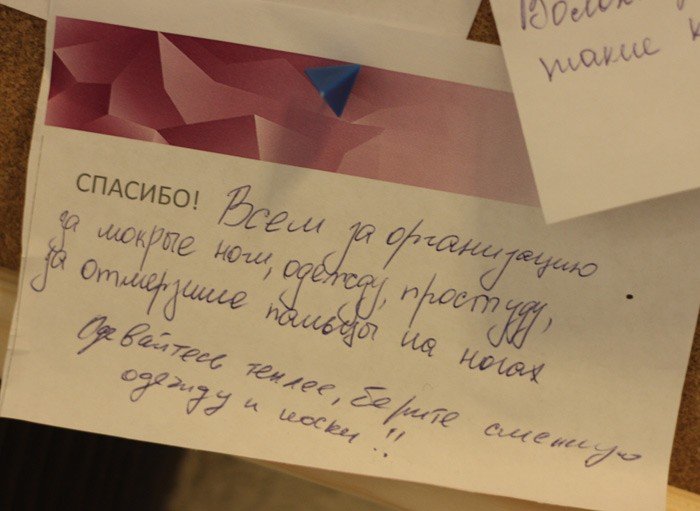 Волон
такие к
СПАСИБО! Всем за организацию
за мокрые ноги, одежду, простуду,
за отмерзшие пальцы на ногах
Одевайтесь теплее, берите сменную
одежду и носки!!